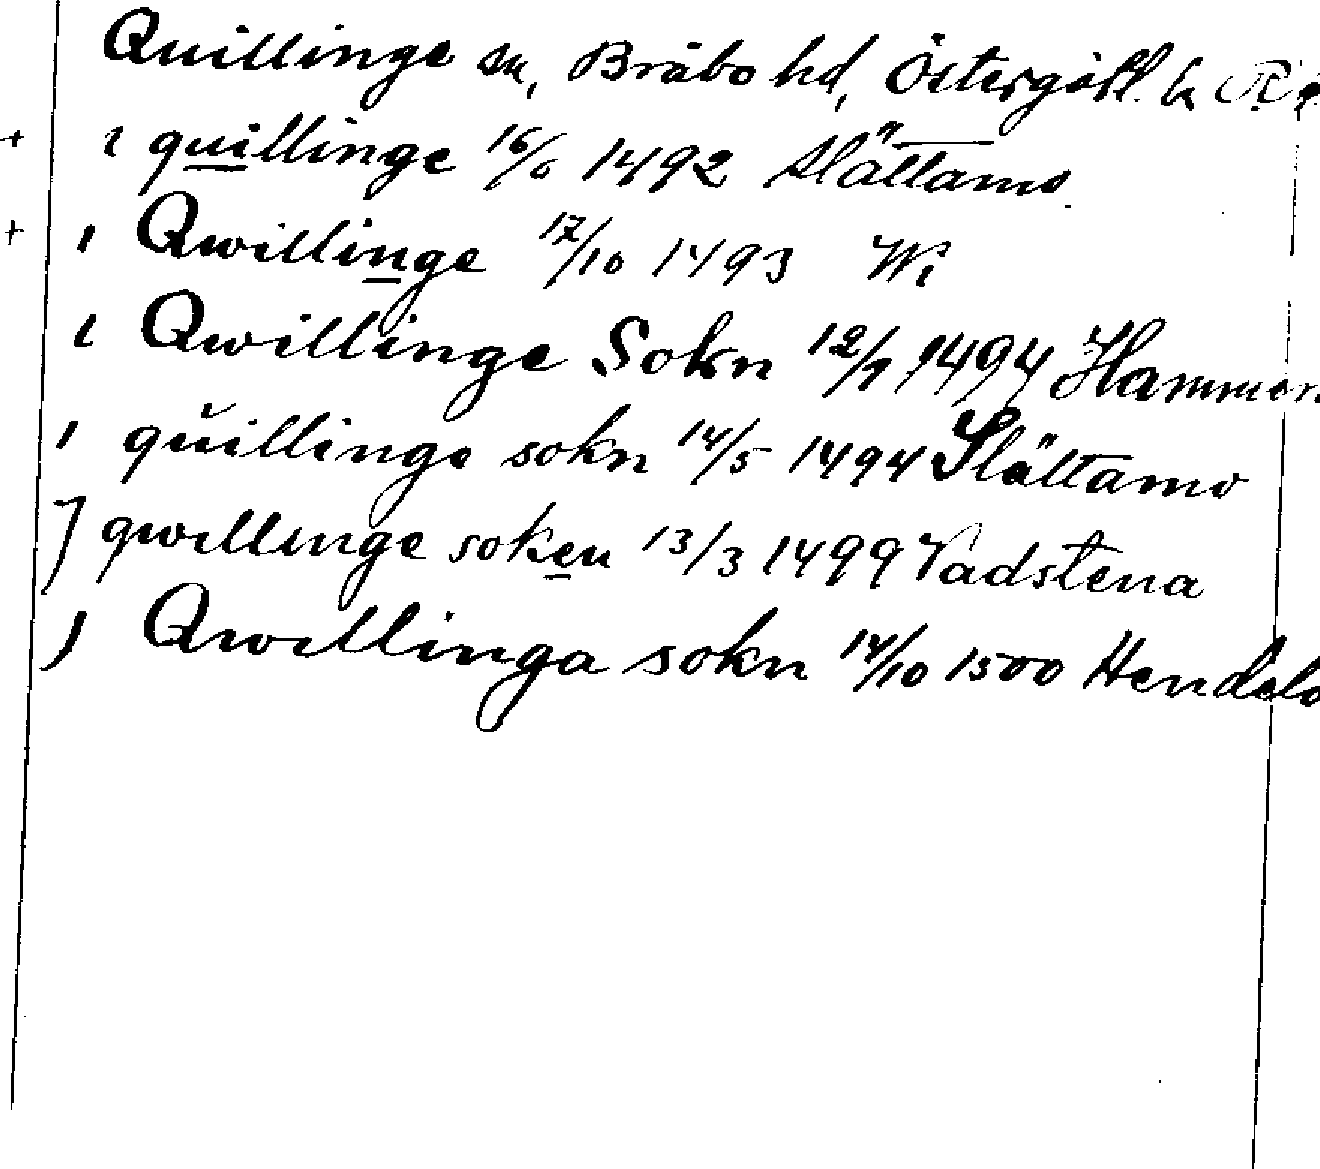 Quillinge sn, Bråbo hd, Östergötl. l.
+ i quillinge 16/6 1492 Slättamo
+ i Qwillinge 17/10 1493 Wi
i Qwillinge Sokn 12/1 1494 Hammar
i quillinge sokn 14/5 1494 Slättamo
J qwillinge soken 13/3 1499 Vadstena
J Qwillinga sokn 14/10 1500 Hendelö